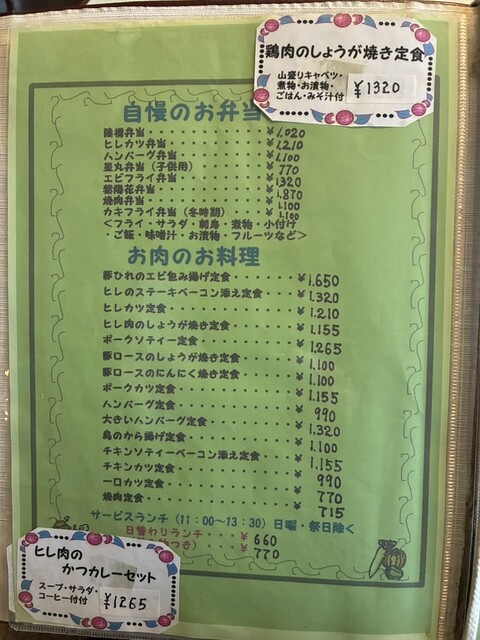 鶏肉のしょうが焼き定食
山盛りキャベツ・
煮物・お漬物・
ごはん・みそ汁付
¥1320
自慢のお弁当
陣構弁当・・・・・・・・・・・¥1,020
ヒレカツ弁当・・・・・・・・・¥1,210
ハンバーグ弁当・・・・・・・・¥1,100
星丸弁当(子供用)・・・・・・・¥770
エビフライ弁当・・・・・・・・¥1,320
紫陽花弁当・・・・・・・・・・¥1,870
焼肉弁当・・・・・・・・・・・¥1,100
カキフライ弁当(冬時期)・・・・¥1,100
<フライ・サラダ・刺身・煮物・小付け
・ご飯・味噌汁・お漬物・フルーツなど>
お肉のお料理
豚ひれのエビ包み揚げ定食・・・・・・・¥1,650
ヒレのステーキベーコン添え定食・・・・¥1,320
ヒレカツ定食・・・・・・・・・・・・・¥1,210
ヒレ肉のしょうが焼き定食・・・・・・・¥1,155
ポークソティー定食・・・・・・・・・・¥1,265
豚ロースのしょうが焼き定食・・・・・・¥1,100
豚ロースのにんにく焼き定食・・・・・・¥1,100
ポークカツ定食・・・・・・・・・・・・¥1,155
ハンバーグ定食・・・・・・・・・・・・¥990
大きいハンバーグ定食・・・・・・・・・¥1,320
鳥のから揚げ定食・・・・・・・・・・・¥1,100
チキンソティーベーコン添え定食・・・・¥1,155
チキンカツ定食・・・・・・・・・・・・¥990
一口カツ定食・・・・・・・・・・・・・¥770
焼肉定食・・・・・・・・・・・・・・・¥715
サービスランチ(11:00~13:30)日曜・祭日除く
日替わりランチ・・・¥660
つき)・・・¥770
ヒレ肉の
かつカレーセット
スープ・サラダ・
コーヒー付付
¥1265